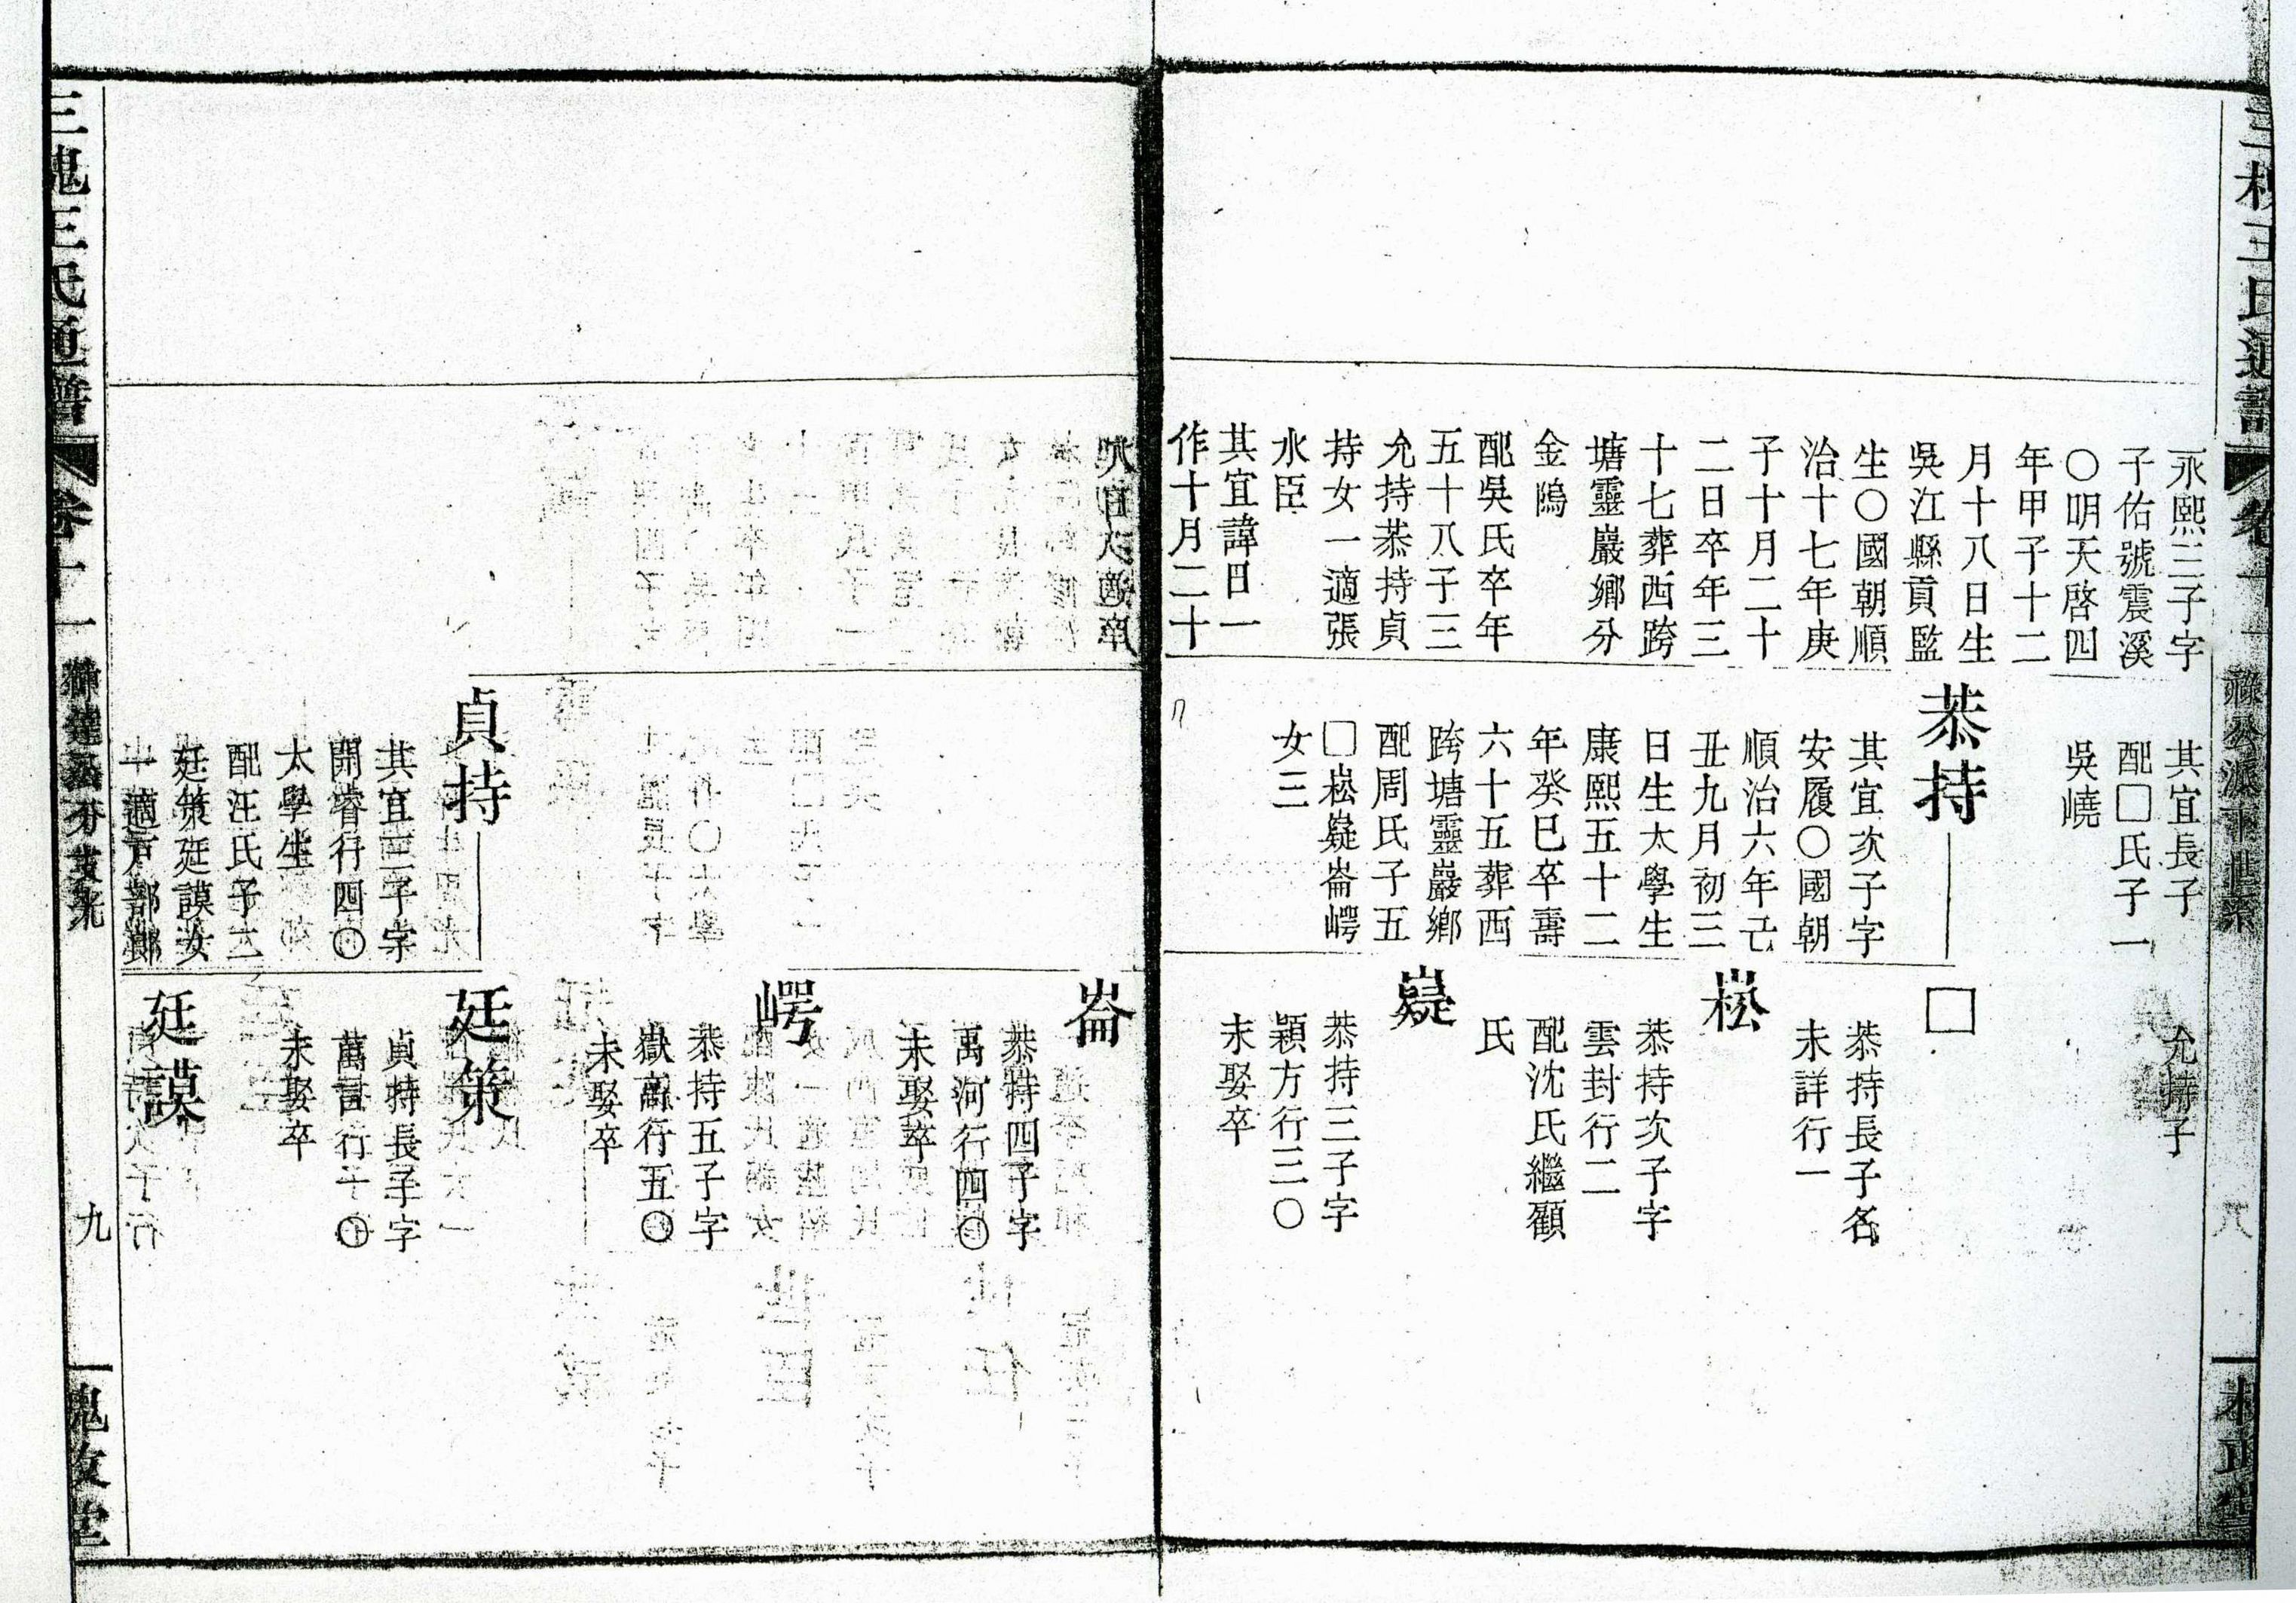 永熙三子字
子佑號震溪
〇明天啓四
年甲子十二
月十八日生
吳江縣貢監
生〇國朝順
治十七年庚
子十月二十
二日卒年三
十七葬西跨
塘靈巖鄉分
金隖
配吳氏卒年
五十八子三
允持恭持貞
持女一適張
永臣
其宜諱日一
作十月二十
其宜長子
配□氏子一
吳嶢
恭持
其宜次子字
安履〇國朝
順治六年己
丑九月初三
日生太學生
康熙五十二
年癸巳卒壽
六十五葬西
跨塘靈巖鄉
配周氏子五
□崧嶷崙崿
女三
允持子
□
恭持長子名
未詳行一
崧
恭持次子字
雲封行二
配沈氏繼顧
氏
嶷
恭持三子字
穎方行三〇
未娶卒
貞持
其宜三子字
開睿行四〇
太學生
配汪氏子二
廷策廷謨女
崙
恭持四子字
禹河行四〇
未娶卒
崿
恭持五子字
嶽高行五〇
未娶卒
廷策
貞持長子字
萬言行十〇
未娶卒
廷謨
三槐王氏通譜
卷十一
九
槐政堂